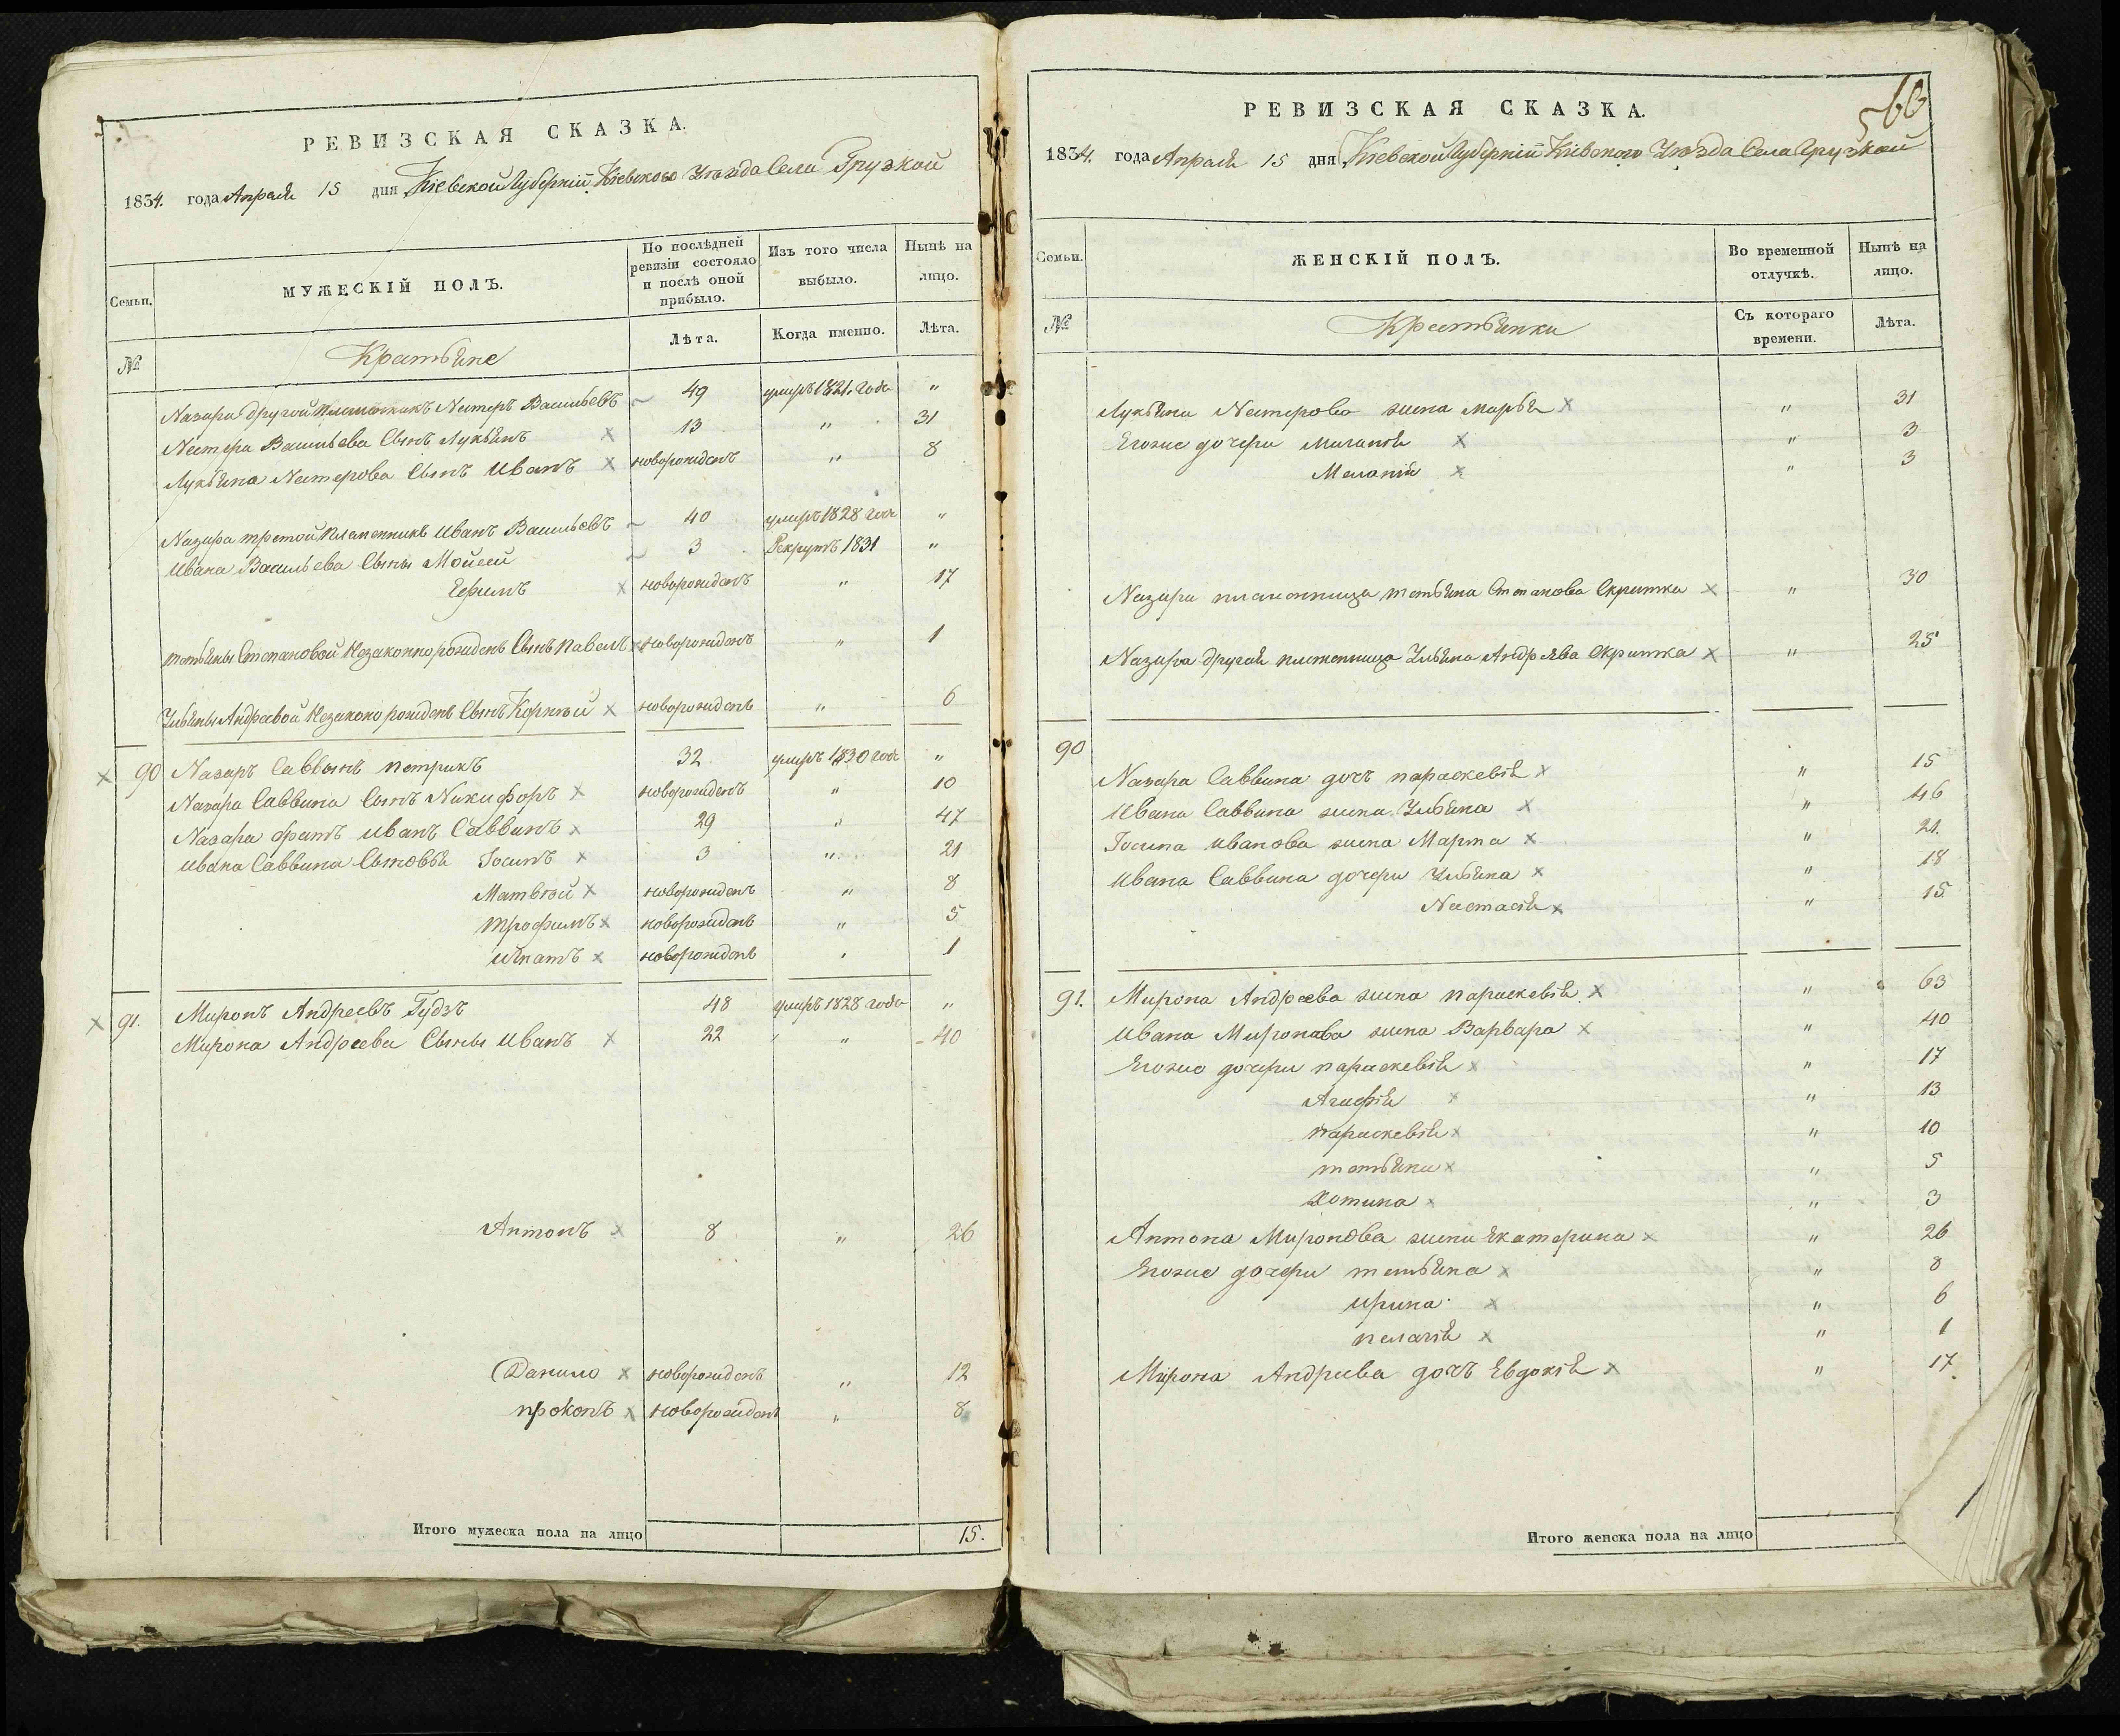 РЕВИЗСКАЯ СКАЗКА.
1834. года Апреля 15 дня Кіевской Губерніи Кіевского Уѣзда Села Грузкой
Семьи. МУЖЕСКІЙ ПОЛЪ. По послѣдней ревизіи состояло и послѣ оной прибыло. Изъ того числа выбыло. Нынѣ на лицо.
№ Крестьяне Лѣта. Когда именно. Лѣта.
Назара другой племянникъ Нестеръ Васильевъ 49 умеръ 1821. года "
Нестера Васильева Сынъ Лукьянъ × 13 " 31
Лукьяна Нестерова Сынъ Иванъ × новорожденъ " 8
Назара третой племенникъ Иванъ Васильевъ 40 умеръ 1828 года "
Ивана Васильева Сыны Мойсей 3 Рекрутъ 1831 "
Ефимъ × новорожденъ " 17
Татьяны Степановой Незаконнорожденъ Сынъ Павелъ × новорожденъ " 1
Ульяны Андреевой Незаконорожденъ Сынъ Корнѣй × новорожденъ " 6
× 90 Назаръ Саввинъ Петрикъ 32 умеръ 1830 года "
Назара Саввина Сынъ Никифоръ × новорожденъ " 10
Назара братъ Иванъ Саввинъ × 29 " 47
Ивана Саввина Сыновья Іосипъ × 3 " 21
Матвѣй × новорожденъ " 8
Трофимъ × новорожденъ " 5
Игнатъ × новорожденъ " 1
× 91. Миронъ Андреевъ Гудзъ 48 умеръ 1828 года "
Мирона Андреева Сыны Иванъ × 22 " 40
Антонъ × 8 " 26
Данило × новорожденъ " 12
Прокопъ × новорожденъ " 8
Итого мужеска пола на лицо 15.
РЕВИЗСКАЯ СКАЗКА.
1834. года Апреля 15 дня Кіевской Губерніи Кіевского Уѣзда Села Грузкой
Семьи. ЖЕНСКІЙ ПОЛЪ. Во временной отлучкѣ. Нынѣ на лицо.
№ Крестьянки Съ котораго времени. Лѣта.
Лукьяна Нестерова жена Марья × " 31
Егоже дочери Маланія × " 3
Меланія × " 3
Назара племенница Татьяна Степанова Скритка × " 30
Назара другая племенница Ульяна Андреева Скритка × " 25
90
Назара Саввина дочъ Параскевія × " 15
Ивана Саввина жена Ульяна × " 46
Іосипа Иванова жена Марта × " 21.
Ивана Саввина дочери Ульяна × " 18
Настасія × " 15
91. Мирона Андреева жена Параскевія × " 63
Ивана Миронова жена Варвара × " 40
Егоже дочери Параскевія × " 17
Агафія × " 13
Параскевія × " 10
Татьяна × " 5
Хотина × " 3
Антона Миронова жена Екатерина × " 26
Егоже дочери Татьяна × " 8
Ирина × " 6
Пелагія × " 1
Мирона Андреева дочъ Евдокія × " 17
Итого женска пола на лицо